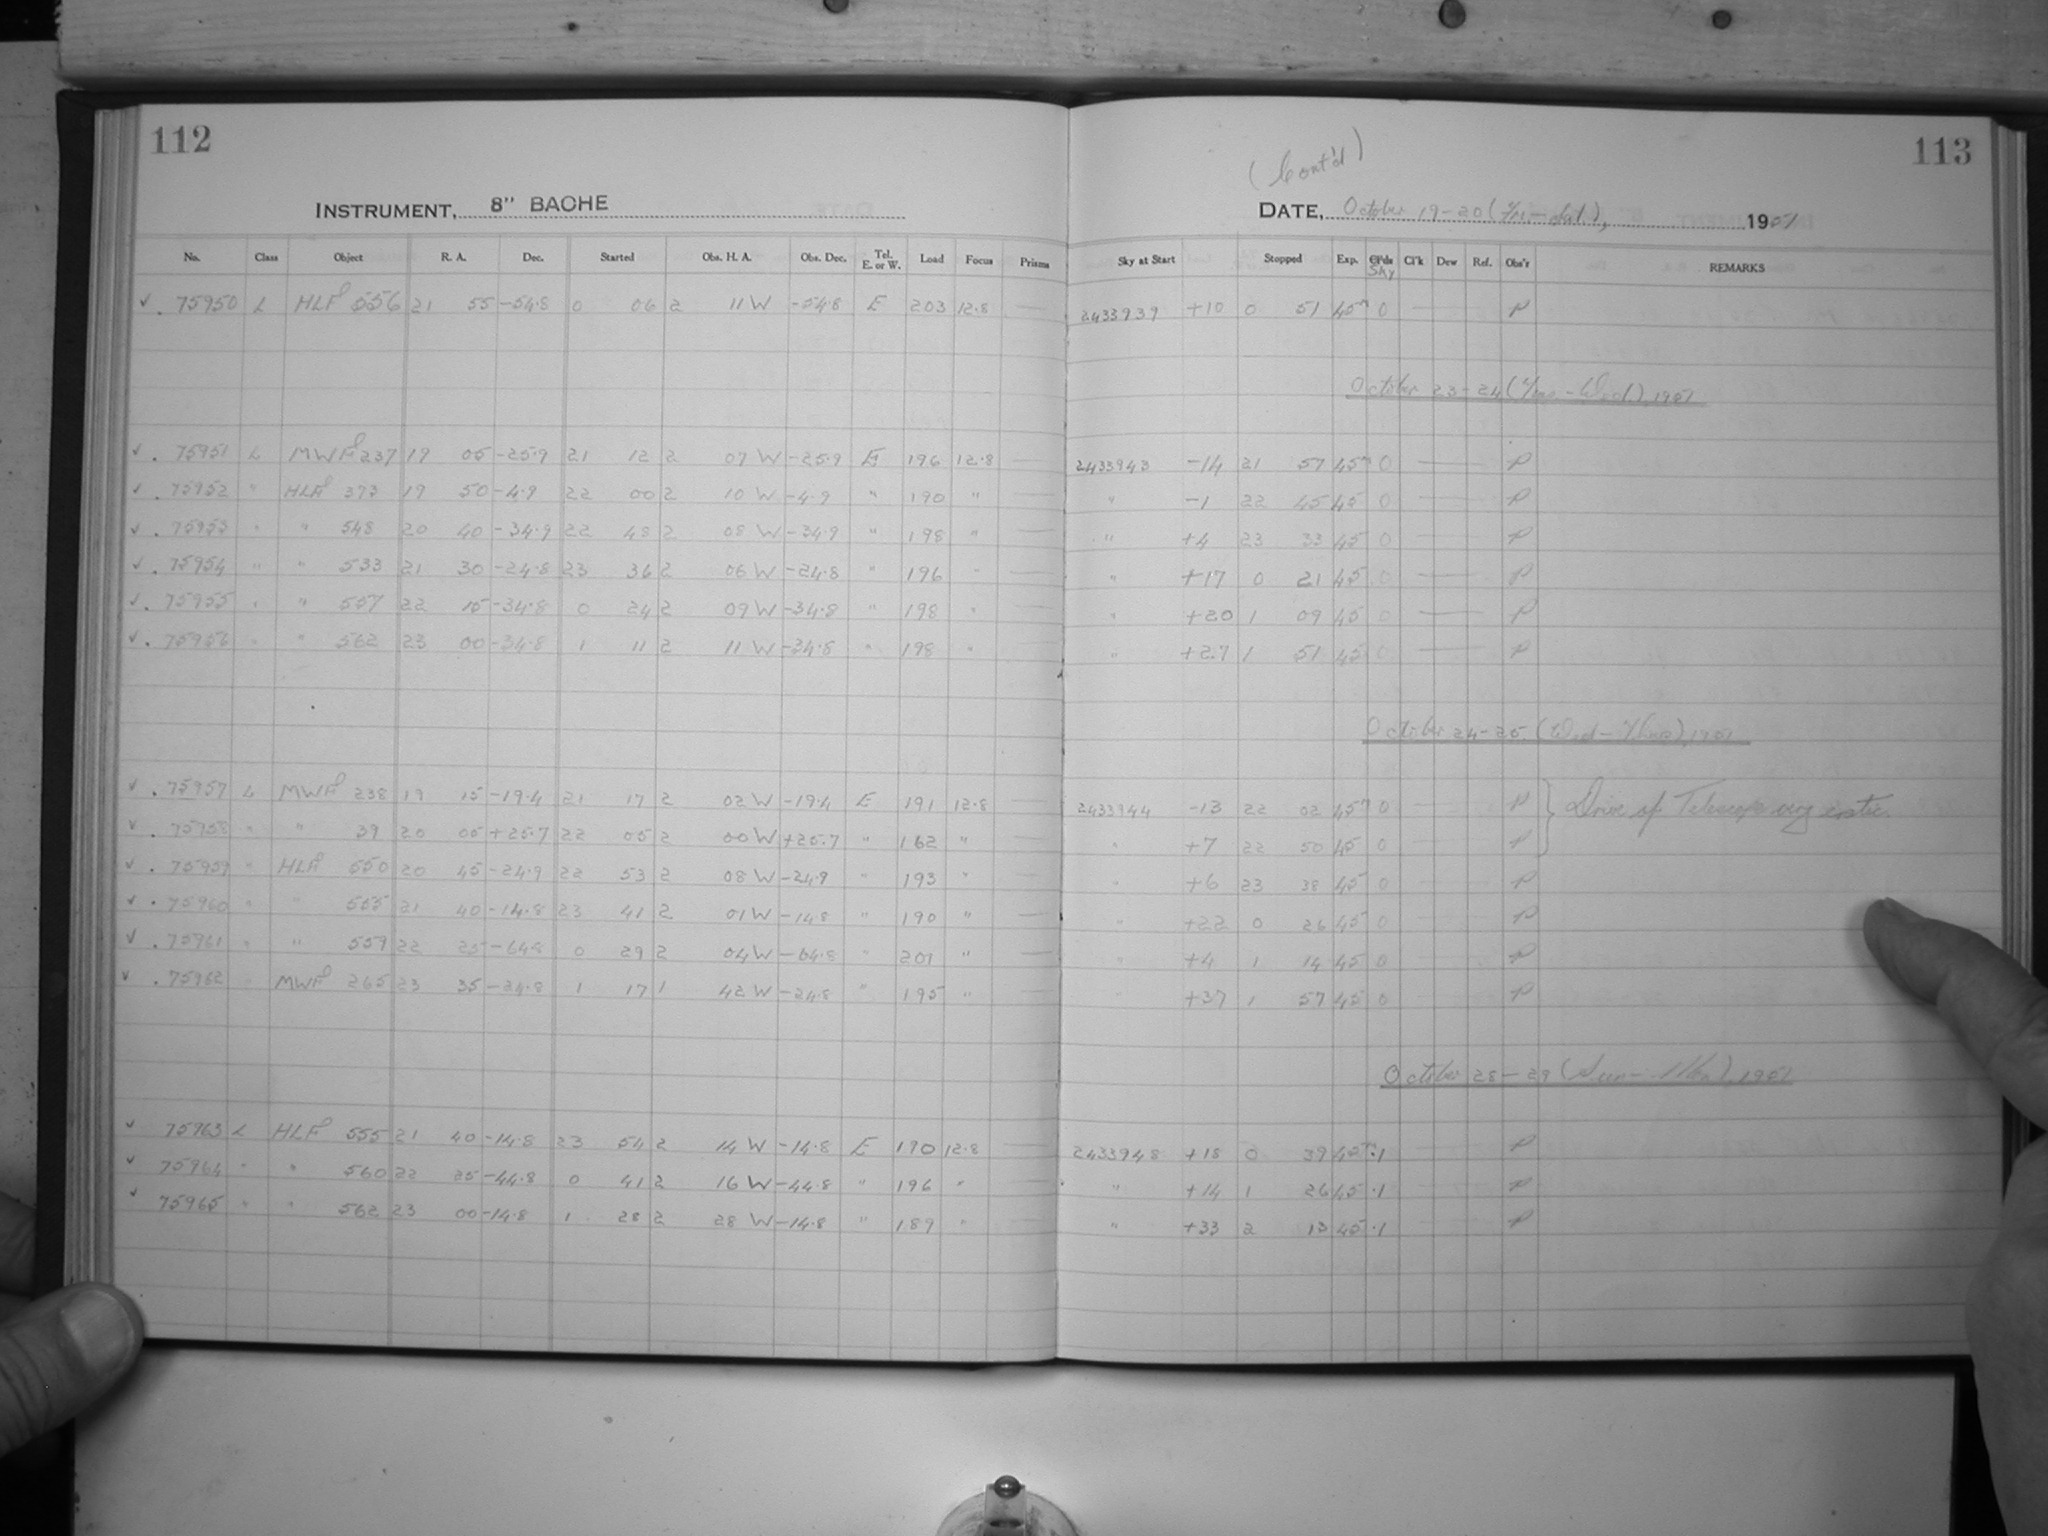 112
INSTRUMENT, 8" BACHE
No. Class Object R. A. Dec. Started Obs. H. A. Obs. Dec. Tel. E. or W. Load Focus Prisms
✓ . 75950 L HLF 556 21 55 -54.8 0 06 2 11 W -54.8 E 203 12.8 —
✓ . 75951 L MWF 237 19 05 -25.9 21 12 2 07 W -25.9 E 196 12.8 —
✓ . 75952 " HLF 373 19 50 -4.9 22 00 2 10 W -4.9 " 190 " —
✓ . 75953 " " 548 20 40 -34.9 22 48 2 08 W -34.9 " 198 " —
✓ . 75954 " " 533 21 30 -24.8 23 36 2 06 W -24.8 " 196 " —
✓ . 75955 " " 557 22 15 -34.8 0 24 2 09 W -34.8 " 198 " —
✓ . 75956 " " 562 23 00 -34.8 1 11 2 11 W -34.8 " 198 " —
✓ . 75957 L MWF 238 19 15 -19.4 21 17 2 02 W -19.4 E 191 12.8 —
✓ . 75958 " " 39 20 05 +25.7 22 05 2 00 W +25.7 " 162 " —
✓ . 75959 " HLF 550 20 45 -24.9 22 53 2 08 W -24.9 " 193 " —
✓ . 75960 " " 555 21 40 -14.8 23 41 2 01 W -14.8 " 190 " —
✓ . 75961 " " 557 22 25 -64.8 0 29 2 04 W -64.8 " 201 " —
✓ . 75962 MWF 265 23 35 -24.8 1 17 1 42 W -24.8 " 195 " —
✓ 75963 L HLF 555 21 40 -14.8 23 54 2 14 W -14.8 E 190 12.8 —
✓ 75964 " " 560 22 25 -44.8 0 41 2 16 W -44.8 " 196 " —
✓ 75965 " " 562 23 00 -14.8 1 28 2 28 W -14.8 " 189 " —
113
(Cont'd)
DATE, October 19-20 (Fri.-Sat.), 1951
Sky at Start Stopped Exp. Cl'ds Sky Cl'k Dew Ref. Obs'r REMARKS
2433939 +10 0 51 45m 0 — P
October 23-24 (Tues-Wed), 1951
2433943 -14 21 57 45m 0 — P
" -1 22 45 45 0 — P
" +4 23 33 45 0 — P
" +17 0 21 45 0 — P
" +20 1 09 45 0 — P
" +27 1 51 45 0 — P
October 24-25 (Wed-Thurs), 1951
2433944 -13 22 02 45m 0 P Drive of Telescope very erratic.
" +7 22 50 45 0 P
" +6 23 38 45 0 P
" +22 0 26 45 0 P
" +4 1 14 45 0 P
" +37 1 57 45 0 P
October 28-29 (Sun-Mon), 1951
2433948 +18 0 39 45m .1 P
" +14 1 26 45 .1 P
" +33 2 13 45 .1 P